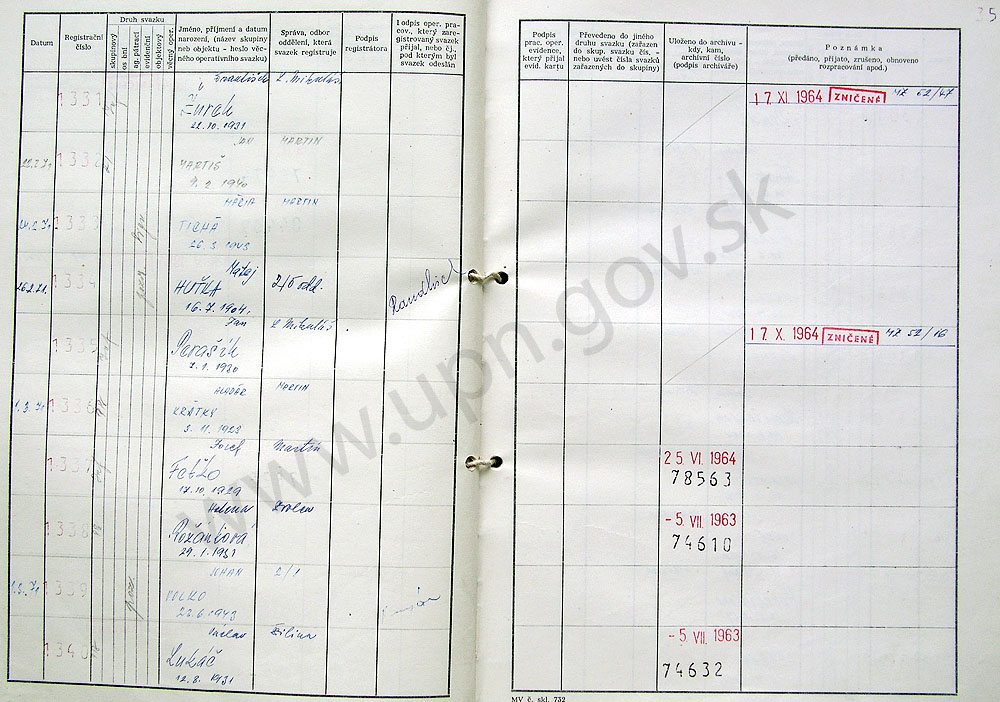 35
Datum
Registrační číslo
Druh svazku
skupinový
os bní
ag. pátrací
evidenční
objektový
věcný oper.
Jméno, příjmení a datum narození, (název skupiny neb objektu - heslo věcného operativního svazku)
Správa, odbor oddělení, která svazek registruje
Podpis registrátora
Podpis oper. pracov., který zaregistrovaný svazek přijal, nebo čj., pod kterým byl svazek odeslán
Podpis prac. oper. evidence, který přijal evid. kartu
Převedeno do jiného druhu svazku (zařazen do skup. svazku čís. - nebo uvést čísla svazků zařazených do skupiny)
Uloženo do archivu - kdy, kam, archivní číslo (podpis archiváře)
Poznámka
(předáno, přijato, zrušeno, obnoveno rozpracování apod.)
František L. Mikuláš
1331 Žurek
22.10.1931
17 XI. 1964 ZNIČENÉ
JAN MARTIN
1332 MARTIŠ
9. 2 1940
MÁRIA MARTIN
1333 TICHÁ
Matej
26.2.71. 1334 HUŤKA 2/5 odd.
16.7.1904.
Ján L Mikuláš
1335
7.1.1930
17 X. 1964 ZNIČENÉ MZ 52/16
MARTIN
1.3.71 1336 KRÁTKY
5.11.1923
Martin
1337
17.10.1929
25 VI. 1964
78563
Helena Zvolen
1338
29.1.1931
-5. VII. 1963
74610
JOHAN 2/1
1339
23.6.1943
Václav Žilina
1340 Lukáč
12.8.1931
-5. VII. 1963
74632
MV č. skl. 732
www.upn.gov.sk